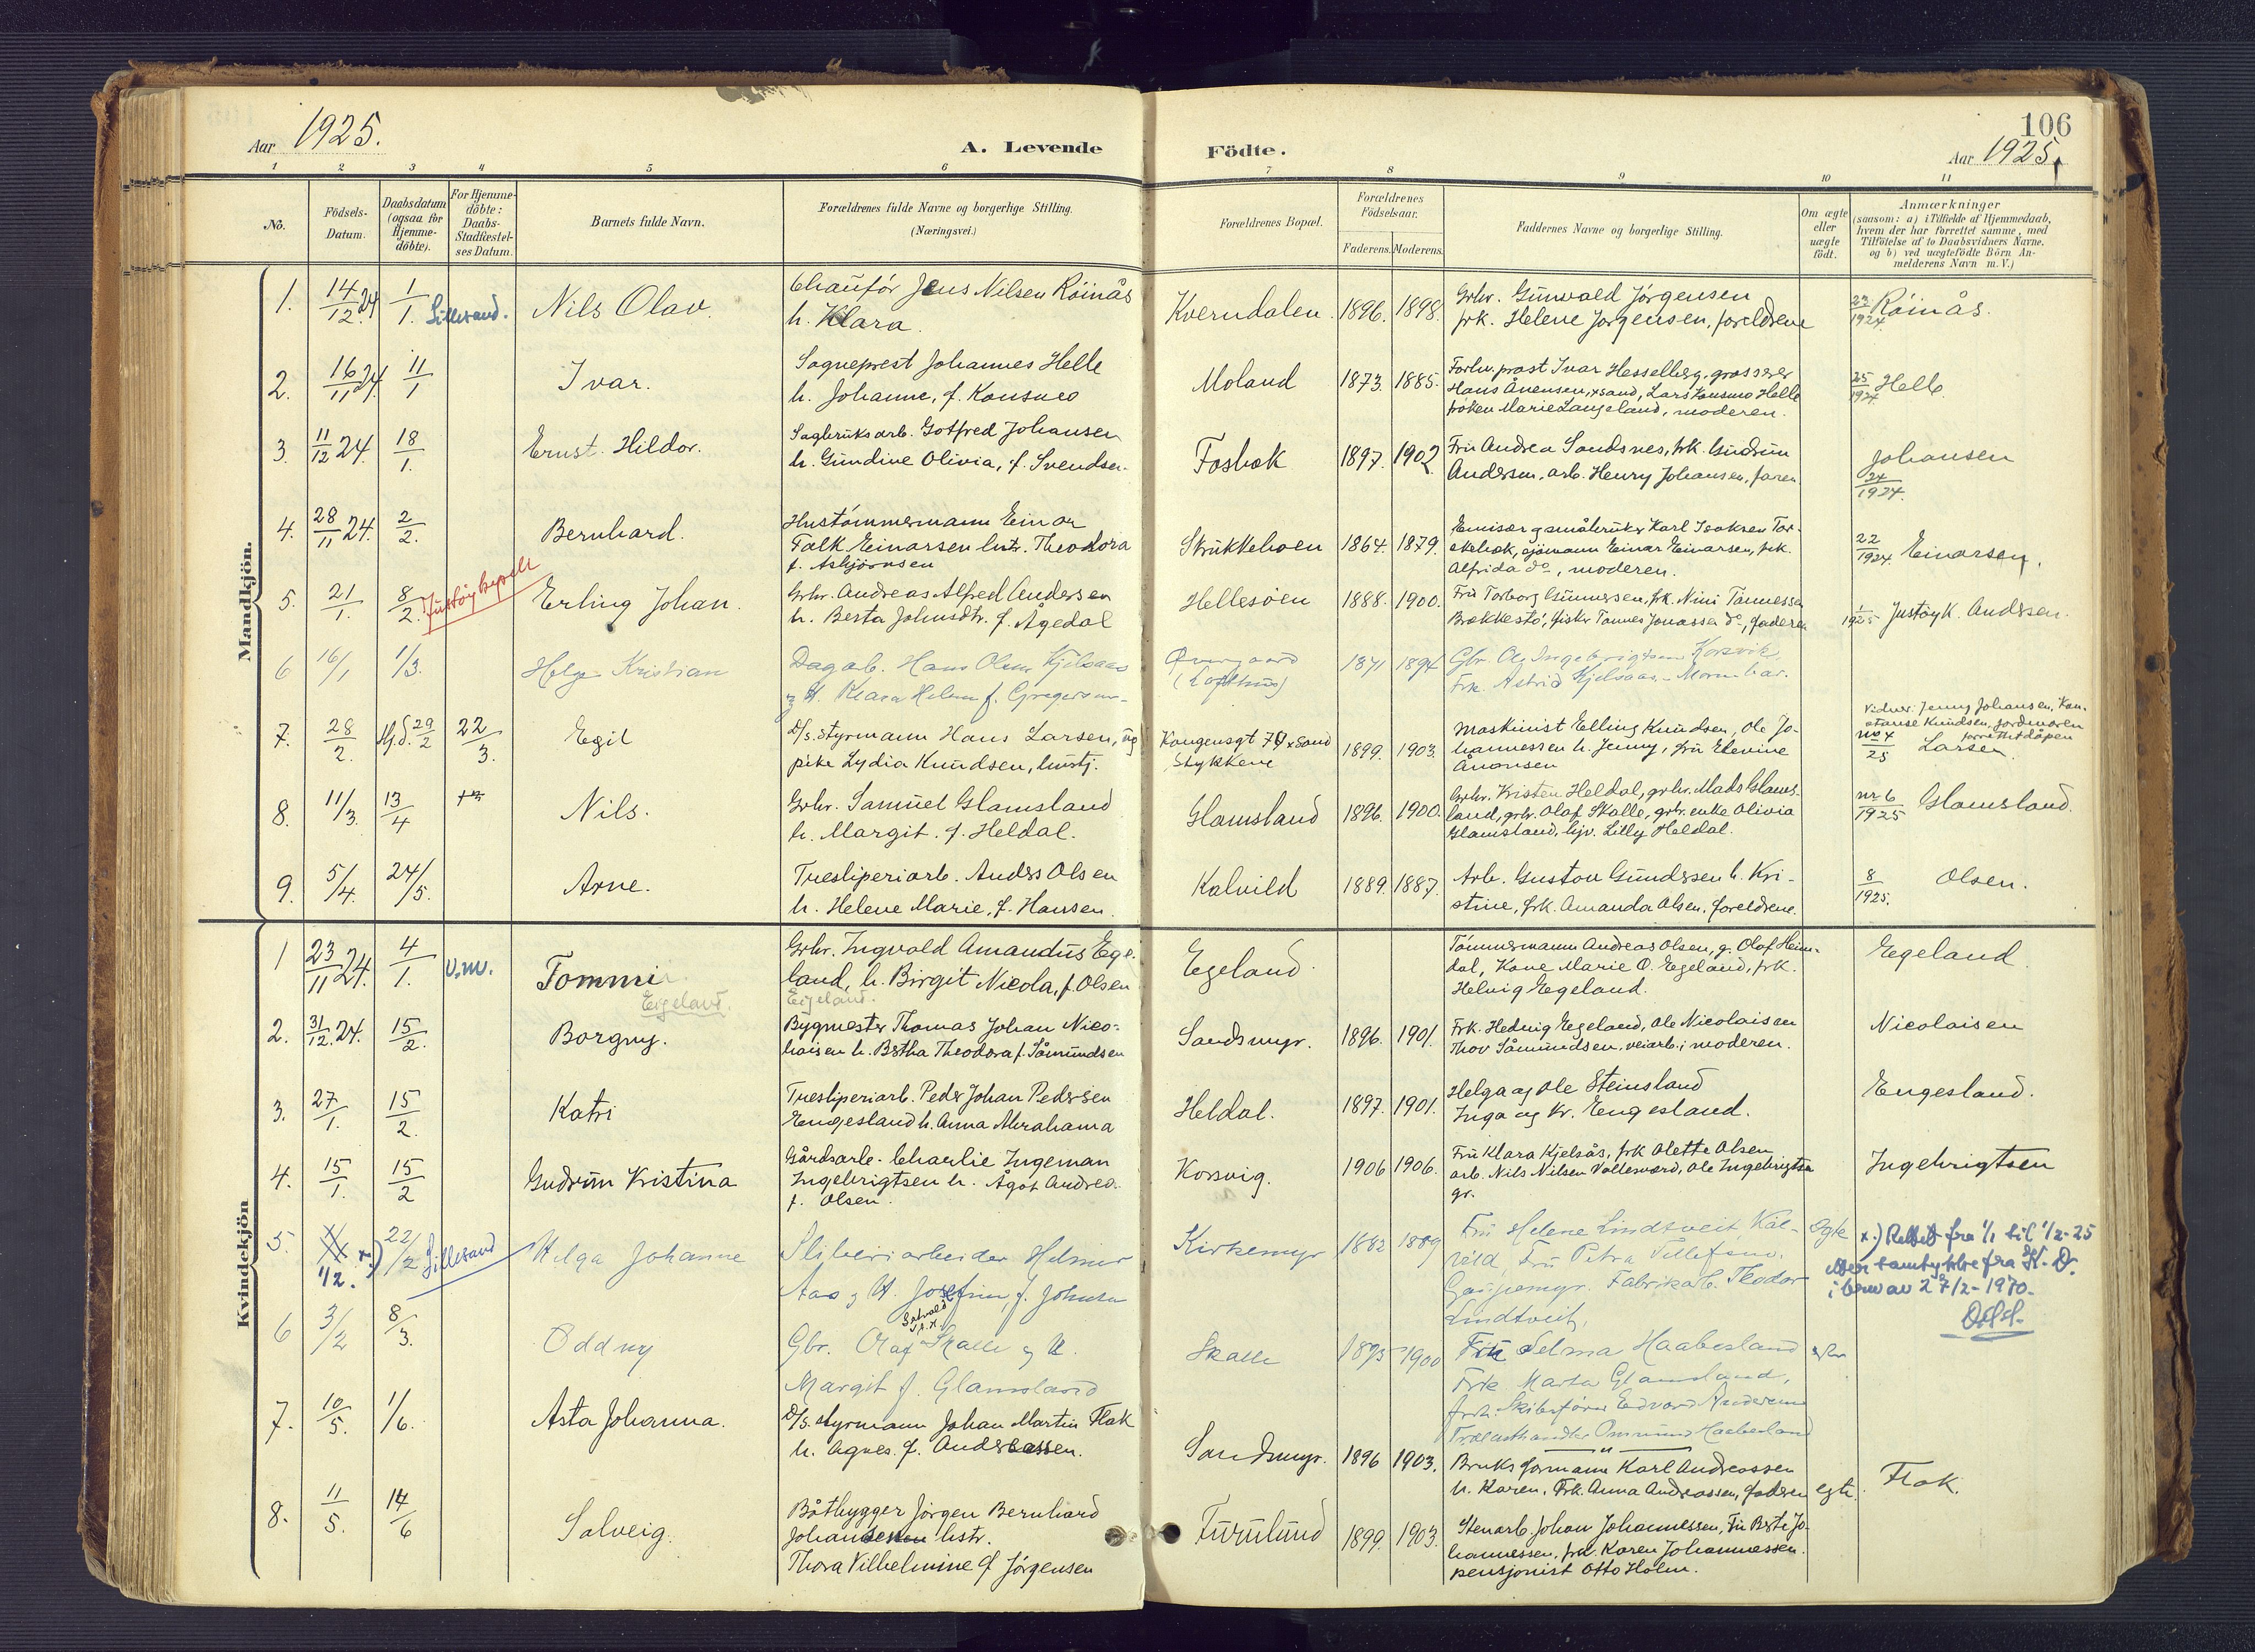 106
Aar 1925. A. Levende Födte. Aar 1925.
1 2 3 4 5 6 7 8 9 10 11
No.
Födsels-Datum.
Daabsdatum (ogsaa for Hjemme-döbte).
For Hjemme-döbte: Daabs-Stadfæstel-ses Datum.
Barnets fulde Navn.
Forældrenes fulde Navne og borgerlige Stilling. (Næringsvei.)
Forældrenes Bopæl.
Forældrenes Födselsaar.
Faderens. Moderens.
Faddernes Navne og borgerlige Stilling.
Om ægte eller uægte födt.
Anmærkninger
(saasom: a) i Tilfælde af Hjemmedaab, hvem der har forrettet samme, med Tilföielse af to Daabsvidners Navne, og b) ved uægtefödte Börn An-melderens Navn m. V.)
Mandkjön.
1. 14/12 24 1/1. Lillesand. Nils Olav.
Chaufór Jens Nilsen Róinås
h. Klara.
Kverndalen. 1896. 1898.
Grbr. Gunvald Jórgensen
frk. Helene Jorgensen, foreldrene
23/1924 Róinås.
2. 16/11 24. 11/1 Ivar.
Sogneprest Johannes Helle
h. Johanne, f. Konsmo
Moland 1873. 1885.
Forhv. prost Ivar Hesselberg, grosserer
Hans Ånensen, xsand, Lars Konsmo Helle
fróken Marie Langeland, moderen.
25/1924 Helle.
3. 11/12 24. 18/1. Ernst Hildor.
Sagbruksarb. Gotfred Johansen
h. Gundine Olivia, f. Svendsen.
Fosbæk 1897. 1902
Fru Andrea Sandsnes, frk. Gudrun
Andersen, arb. Henry Johansen, faren
Johansen
24/1924.
4. 28/11 24. 2/2. Bernhard.
Hustómmermann Einar
Falk Einarsen hstr. Theodora
f. Asbjórnsen
Strukkehoen 1864. 1879.
Emisær g småbruker Karl Isaksen
ekebæk, sjómann Einar Einarsen, frk.
Alfrida do, moderen.
22/1924 Einarsen.
5. 21/1. 8/2. Justóy kapell Erling Johan.
Grbr. Andreas Alfred Andersen
h. Berta Johnsdtr. f. Ågedal
Hellesóen 1888. 1900.
Fru Torborg Gunnersen, frk. Nini Tónnessen
Brækkestó, fisker Tónnes Jonassen do, faderen
1/1925 Justóy K. Andersen.
6 16/1 1/3. Helge Kristian
Dagarb. Hans Olsen Kjelsaas
g H. Klara Helene f. Gregersen
Óvregaard
(Lofthus)
1871 1894
Gbr. Ole Ingebrigtsen Korsvik.
Frk. Astrid Kjelsaas – Moren bar.
7. 28/2. Hj.d. 29/2 22/3. Egil
D/s. styrmann Hans Larsen, ug
pike Lydia Knudsen, hustj.
Kongensgt 74 xsand
Stykkene
1899. 1903.
Maskinist Elling Knudsen, Ole Jo-
hannessen h. Jenny, fru Elevine
Ånonsen
Vidner: Jenny Johansen, Kon-
stanse Knudsen, jordmoren
forrettet dåpen
no 4/25 Larsen
8. 11/3. 13/4 Nils.
Grbr. Samuel Glamsland
h. Margit. f. Heldal.
Glamsland 1896. 1900.
Grbr. Kristen Heldal, grbr. Mads Glams-
land, grbr. Olaf Skalle, grbr. enke Olivia
Glamsland, hjv. Lilly Heldal.
nr 6/1925 Glamsland.
9. 5/4. 24/5. Arne.
Tresliperiarb. Anders Olsen
h. Helene Marie, f. Hansen.
Kalvild 1889. 1887.
Arb. Gustav Gundersen h. Kri-
stine, frk. Amanda Olsen, foreldrene.
8/1925. Olsen.
Kvindekjön
1 23/11 24. 4/1. V.M. Tommi
Egeland.
Grbr. Ingvald Amandus Ege-
land, h. Birgit Nicola, f. Olsen
Egeland.
Egeland.
Tómmermann Andreas Olsen, g. Olaf Heim-
dal, Kone Marie O. Egeland, frk.
Helvig Egeland.
Egeland.
2. 31/12. 24. 15/2. Borgny.
Bygmester Thomas Johan Nico-
laisen h. Bertha Theodora f. Såmundsen
Sandsmyr. 1896. 1901.
Frk. Hedvig Egeland, Ole Nicolaisen
Thov Såmundsen, veiarb., moderen.
Nicolaisen
3. 27/1. 15/2. Katri
Tresliperiarb. Peder Johan Pedersen
Engesland h. Anna Abrahama
Heldal. 1897. 1901.
Helga og Ole Steinsland
Inga og Kr. Engesland.
Engesland.
4. 15/1. 15/2 Gudrun Kristina
Gårdsarb. Charlie Ingeman
Ingebrigtsen h. Ågot Andrea
f. Olsen.
Korsvig. 1906 1906.
Fru Klara Kjelsås, frk Olette Olsen
arb. Nils Nilsen Vallesværd, Ole Ingebrigtsen
gr.
Ingebrigtsen
5. 1/2. x) 22/2 Lillesand Helga Johanne
Sliberiarbeider Helmer
Aas g H. Josefine, f. Johnsen
Kirkemyr 1882 1889
Fru Helene Lindtveit, Kal-
veld, Fru Petra Tellefsen,
Gaupemyr. Fabrikarb. Theodor
Lindtveit.
egte
x.) Rettet fra 1/1 til 1/2-25
etter samtykke fra K.D.
i brev av 27/2-1970.
6 3/2 8/3. Oddny
Gbr. Olaf Skalle g H.
Margit f. Glamsland
Skalle 1895 1900
Fru Selma Haabesland
Frk Marta Glamsland,
Skibsfórer Edvard Andersen
Trælasthandler Haabesland
7. 10/5. 1/6. Asta Johanna.
D/s. styrmann Johan Martin Flak
h. Agnes. f. Andreassen.
Sandsmyr. 1896 1903.
Bruksformann Karl Andreassen
h. Karen, Frk. Anna Andreassen, faderen egte.
Flak.
8. 11/5. 14/6 Solveig.
Båtbygger Jórgen Bernhard
Johansen hstr.
Thora Vilhelmine f Jórgensen
Furulund 1899. 1903.
Stenarb. Johan Johannessen, Fru Berte Jo-
hannessen, frk. Karen Johannessen.
pensjonist Otto Holm.